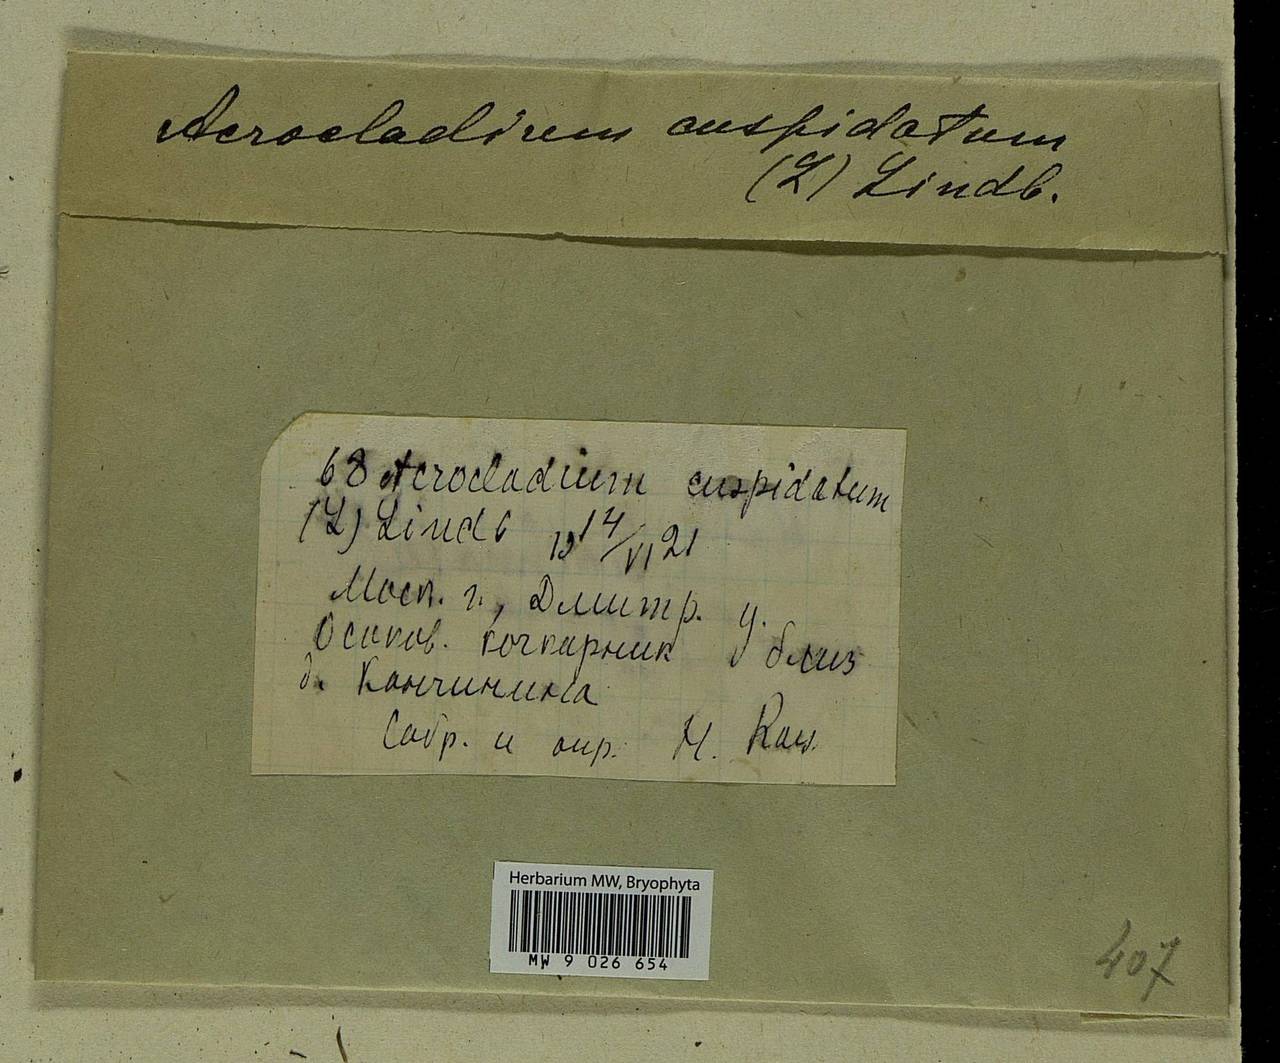 Acrocladium cuspidatum
(L) Lindb.
68 Acrocladium cuspidatum
(L) Lindb 19 14/VI 21
Моск. г., Дмитр. у.
Осиков. кочкарник у близ
д. Канчинина
Собр. и опр. Н. Кац.
Herbarium MW, Bryophyta
MW 9 026 654
407